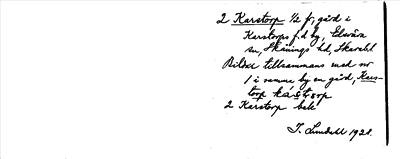 2 Karstorp ½ fr, gård i
Karstorps f.d. by,
sn, Skånings hd, Skarabl
Bildar tillsammans med nr
1 i samma by en gård, Kars-
torp kástorp
2 Karstorp bebl
J. Lundahl 1921.